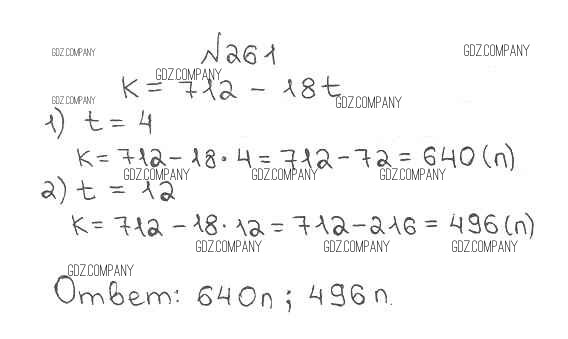 №261
GDZ.COMPANY
GDZ.COMPANY
GDZ.COMPANY
K = 712 - 18t
GDZ.COMPANY
GDZ.COMPANY
1) t = 4
K = 712 - 18 · 4 = 712 - 72 = 640 (л)
GDZ.COMPANY GDZ.COMPANY GDZ.COMPANY
2) t = 12
K = 712 - 18 · 12 = 712 - 216 = 496 (л)
GDZ.COMPANY GDZ.COMPANY GDZ.COMPANY
GDZ.COMPANY
Ответ: 640л ; 496л.